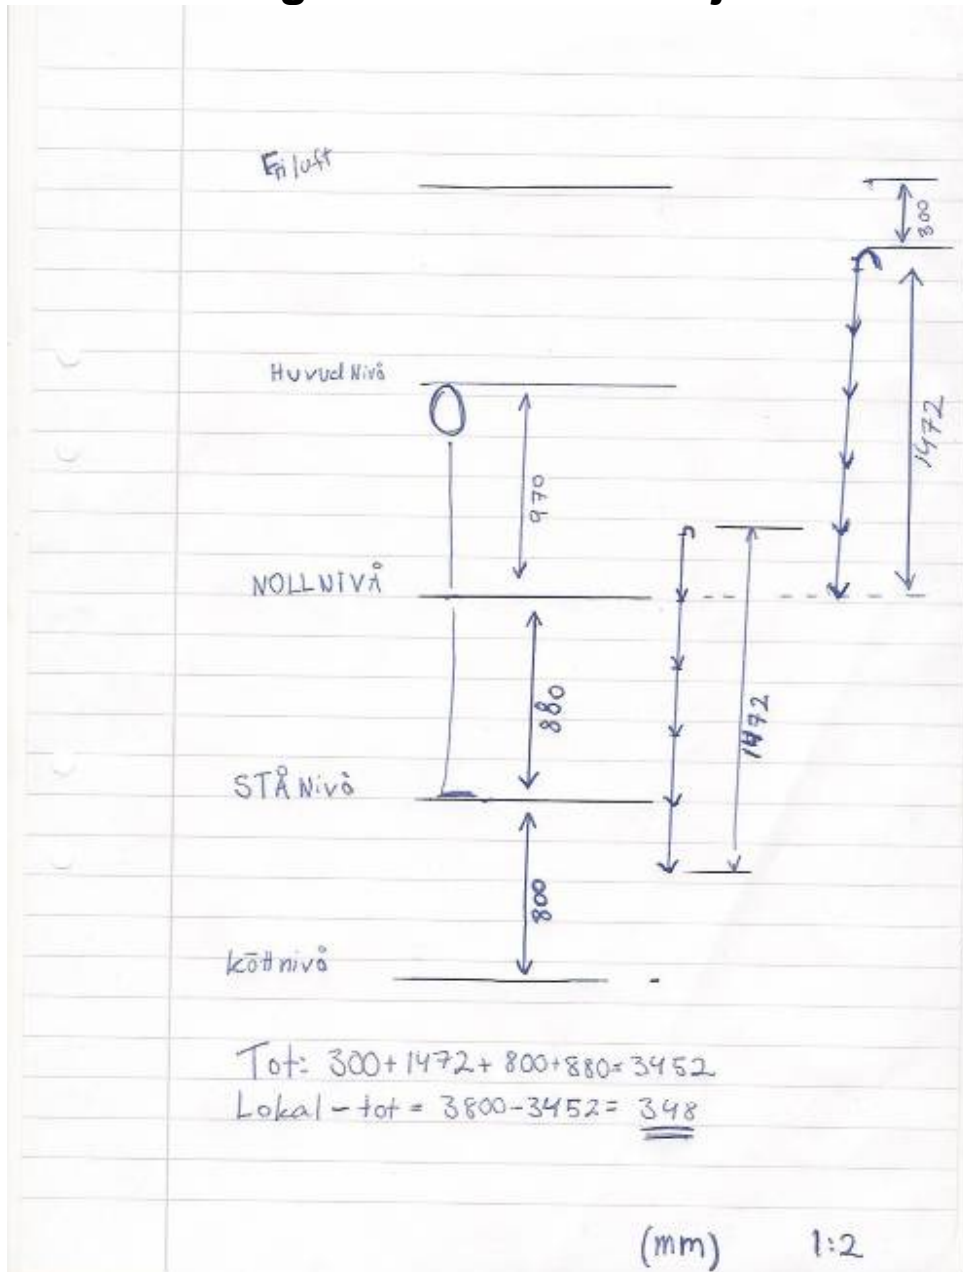 Fri luft
300
Huvud Nivå
1472
970
NOLLNIVÅ
880
1472
STÅ Nivå
800
köttnivå
Tot: 300+1472+800+880=3452
Lokal-tot = 3800-3452= 348
(mm) 1:2